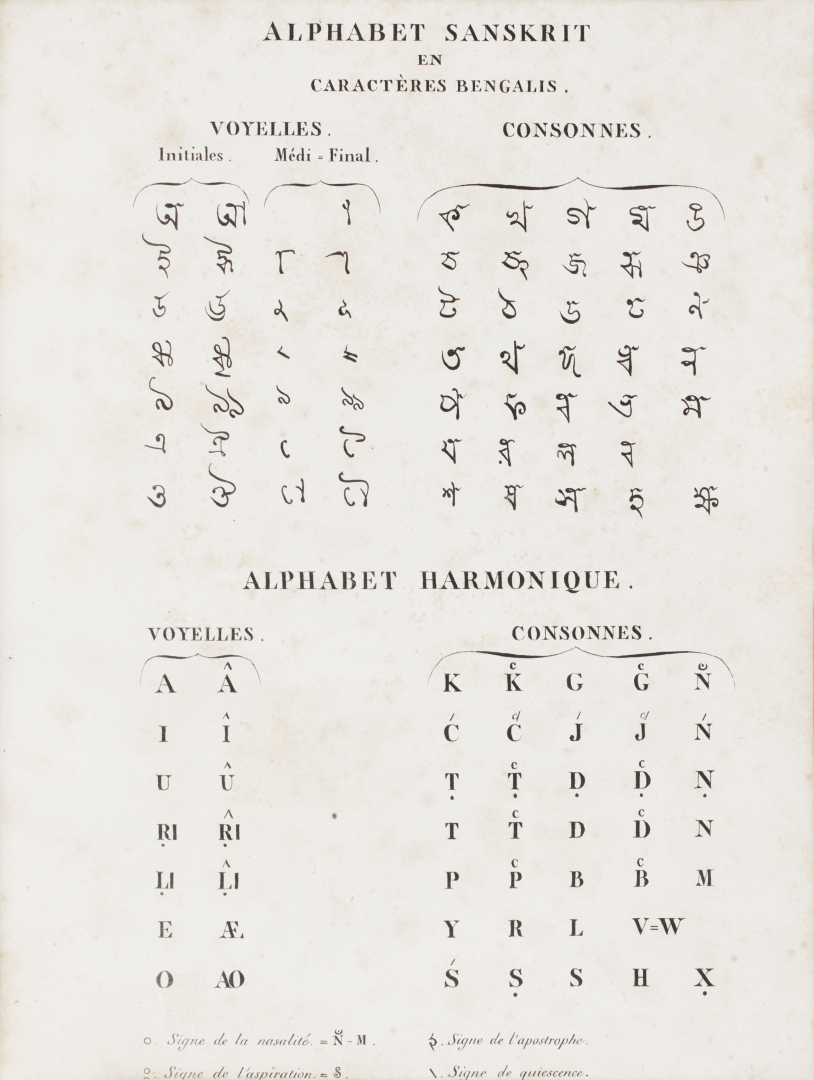 ALPHABET SANSKRIT
EN
CARACTÈRES BENGALIS.
VOYELLES. CONSONNES.
Initiales. Médi = Final.
অ আ া ক খ গ ঘ ঙ
ই ঈ ি ী চ ছ জ ঝ ঞ
উ ঊ ু ূ ট ঠ ড ঢ ণ
ঋ ৠ ৃ ৄ ত থ দ ধ ন
ঌ ৡ ৢ ৣ প ফ ব ভ ম
এ ঐ ে ৈ য র ল ব
ও ঔ ো ৌ শ ষ স হ ক্ষ
ALPHABET HARMONIQUE.
VOYELLES. CONSONNES.
A Â K K̔ G G̔ N̆
I Î Ć C̔́ J́ J̔́ Ń
U Û Ṭ Ṭ̔ Ḍ Ḍ̔ Ṇ
ṚI Ṛ̂I T T̔ D D̔ N
ḶI Ḷ̂I P P̔ B B̔ M
E Æ Y R L V=W
O AO Ś Ṣ S H X̣
○. Signe de la nasalité. = N̆ - M. . Signe de l'apostrophe.
. Signe de l'aspiration. = S. \. Signe de quiescence.